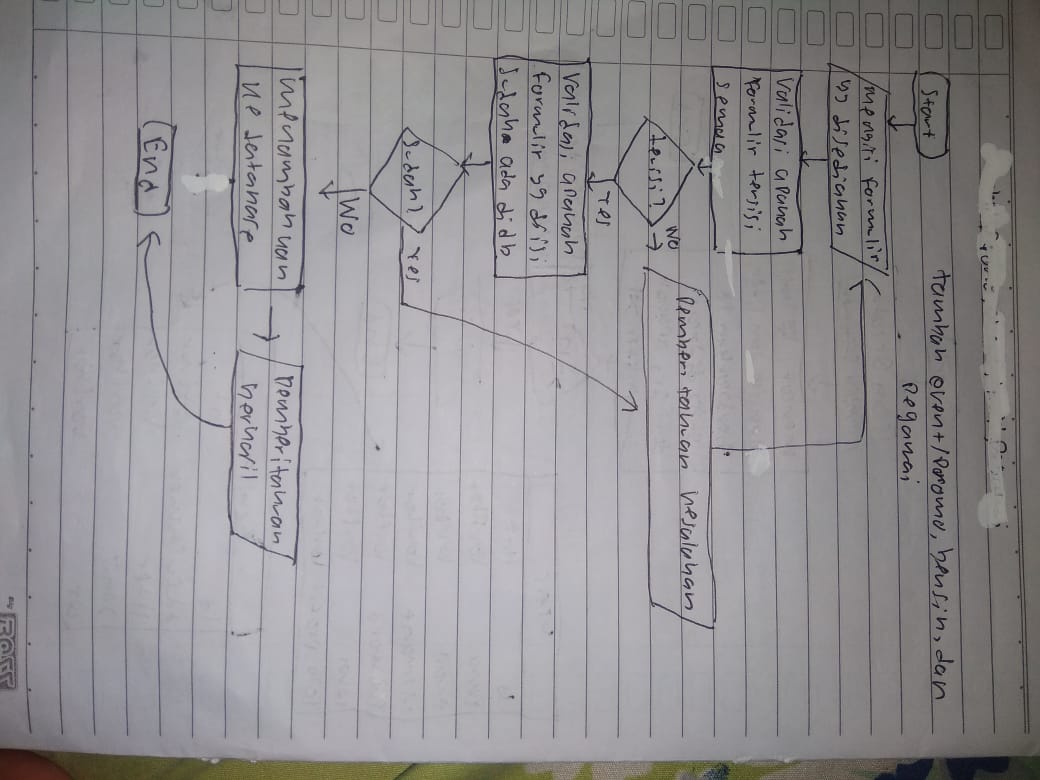 tambah event/Promo, bensin, dan
Pegawai
Start
mengisi formulir
yg disediakan
Validasi apakah
formulir terisi
semua
terisi?
No
Pemberitahuan kesalahan
Yes
Validasi apakah
formulir yg diisi
sudah ada di db
Sudah?
Yes
No
menambahkan
ke database
Pemberitahuan
berhasil
End